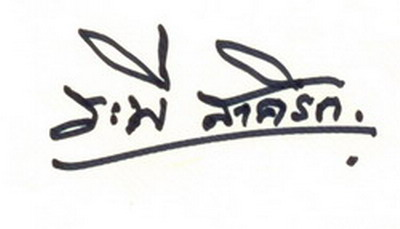 ระพี สาคริก.